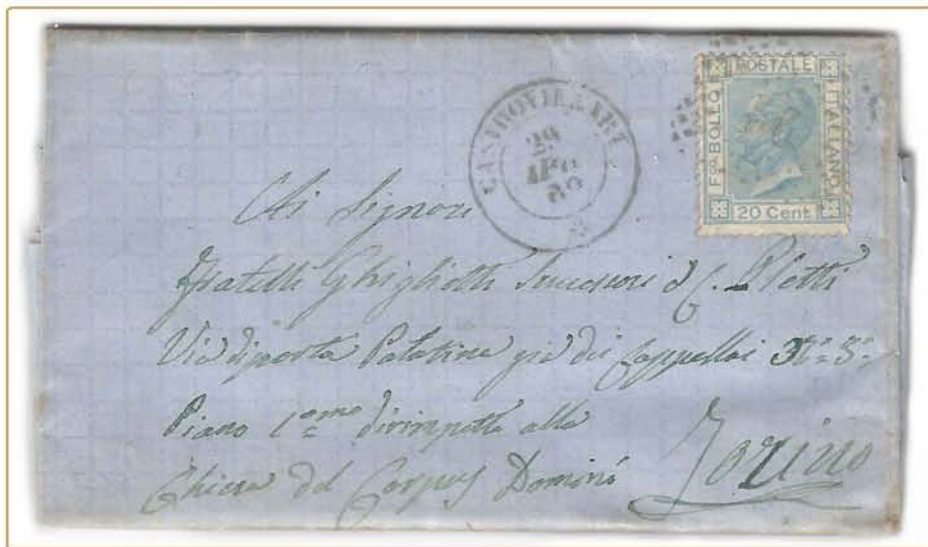 CASTROVILLARI
29
AGO
69
POSTALE
Fco BOLLO
ITALIANO
20 Cent.
Ai Signori
Fratelli Ghigliotti Successori d C.
Via di porta Palatina già dei Cappellai
Piano 1.mo dirimpetto alla
Chiesa del Corpus Domini
Torino